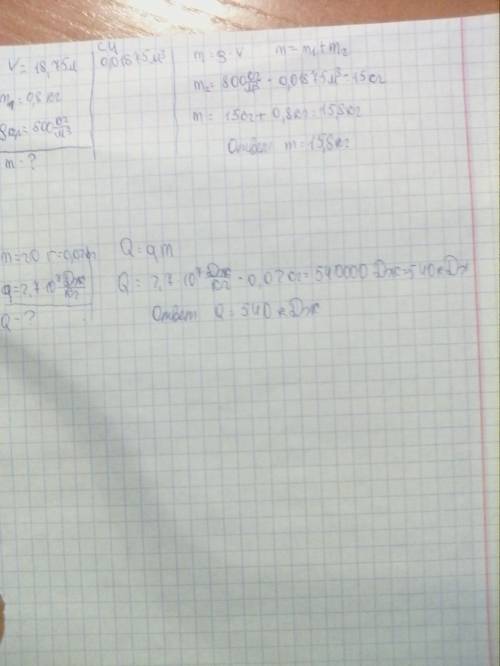 V = 18,75л
СИ
0,01875м³
m₁ = 0,8кг
ρ = 800 кг/м³
m = ?
m = ρ · V m = m₁ + m₂
m₂ = 800 кг/м³ · 0,01875м³ = 15кг
m = 15кг + 0,8кг = 15,8кг
Ответ m = 15,8кг
m = 20 г = 0,02кг
q = 2,7 · 10⁷ Дж/кг
Q - ?
Q = qm
Q = 2,7 · 10⁷ Дж/кг · 0,02кг = 540000 Дж = 540кДж
Ответ Q = 540 кДж